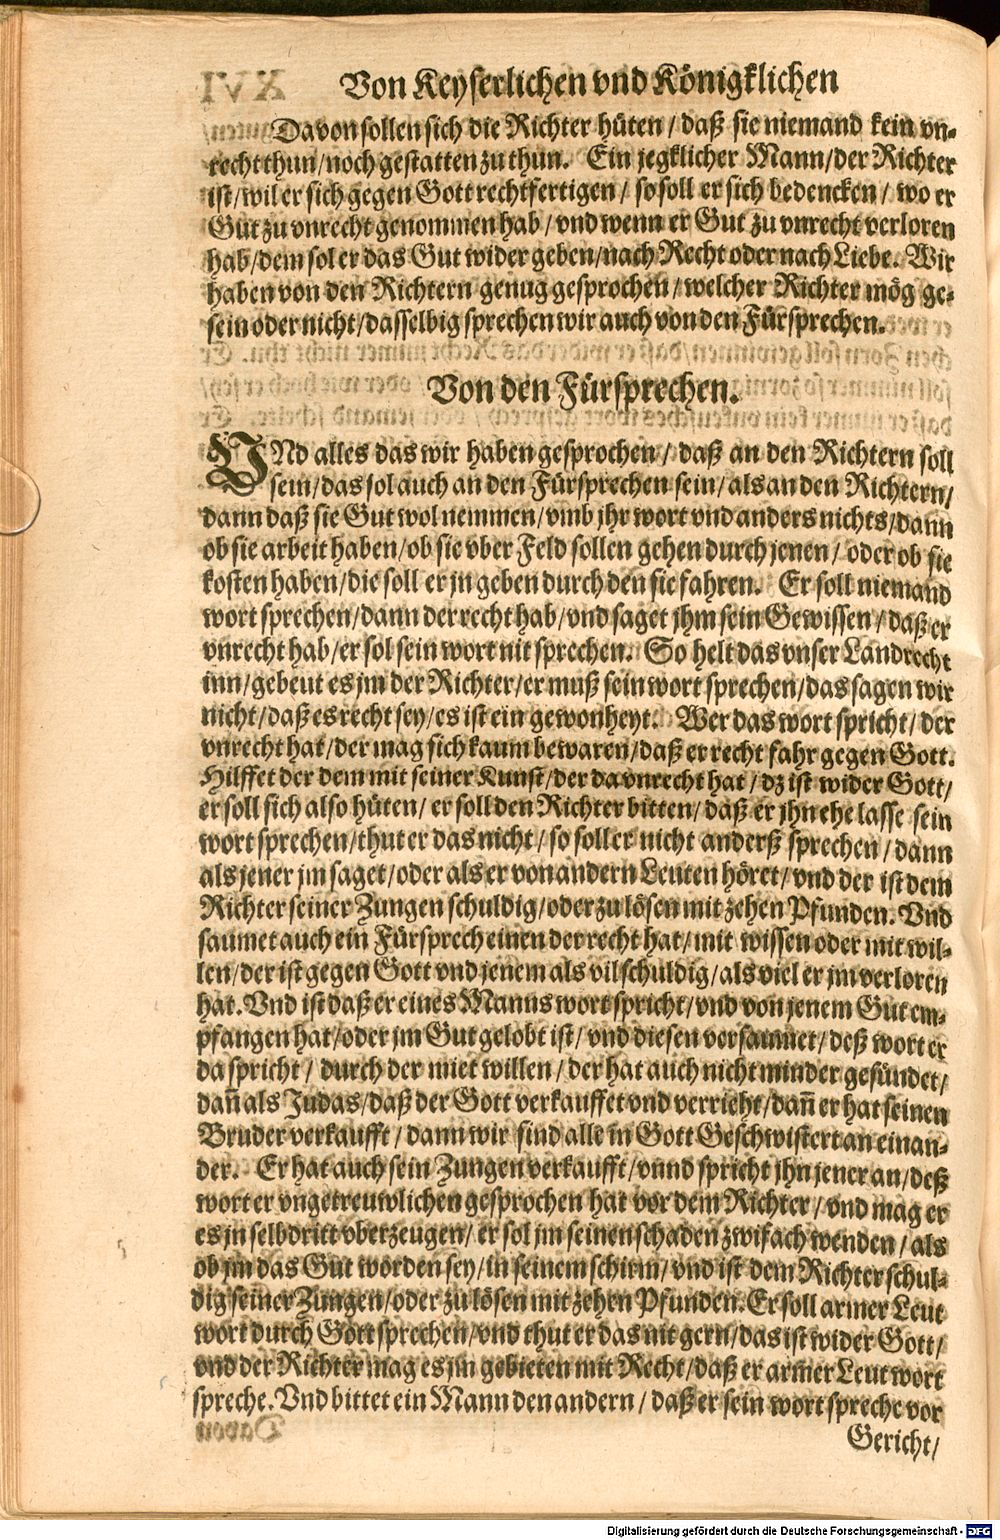 Von Keyserlichen vnd Königklichen
Davon sollen sich die Richter hüten / daß sie niemand kein vn-
recht thun / noch gestatten zu thun. Ein jegklicher Mann / der Richter
ist / wil er sich gegen Gott rechtfertigen / so soll er sich bedencken / wo er
Gut zu vnrecht genommen hab / vnd wenn er Gut zu vnrecht verloren
hab / dem sol er das Gut wider geben / nach Recht oder nach Liebe. Wir
haben von den Richtern genug gesprochen / welcher Richter mög ge-
sein oder nicht / dasselbig sprechen wir auch von den Fürsprechen.
Von den Fürsprechen.
VNd alles das wir haben gesprochen / daß an den Richtern soll
sein / das sol auch an den Fürsprechen sein / als an den Richtern /
dann daß sie Gut wol nemmen / vmb jhr wort vnd anders nichts / dann
ob sie arbeit haben / ob sie vber Feld sollen gehen durch jenen / oder ob sie
kosten haben / die soll er jn geben durch den sie fahren. Er soll niemand
wort sprechen / dann der recht hab / vnd saget jhm sein Gewissen / daß er
vnrecht hab / er sol sein wort nit sprechen. So helt das vnser Landrecht
inn / gebeut es jm der Richter / er muß sein wort sprechen / das sagen wir
nicht / daß es recht sey / es ist ein gewonheyt. Wer das wort spricht / der
vnrecht hat / der mag sich kaum bewaren / daß er recht fahr gegen Gott.
Hilffet der dem mit seiner Kunst / der da vnrecht hat / dz ist wider Gott /
er soll sich also hüten / er soll den Richter bitten / daß er jhn ehe lasse sein
wort sprechen / thut er das nicht / so soll er nicht anderß sprechen / dann
als jener jm saget / oder als er von andern Leuten höret / vnd der ist dem
Richter seiner Zungen schuldig / oder zu lösen mit zehen Pfunden. Vnd
saumet auch ein Fürsprech einen der recht hat / mit wissen oder mit wil-
len / der ist gegen Gott vnd jenem als vil schuldig / als viel er jm verloren
hat. Vnd ist daß er eines Manns wort spricht / vnd von jenem Gut em-
pfangen hat / oder jm Gut gelobt ist / vnd diesen versaumet / deß wort er
da spricht / durch der miet willen / der hat auch nicht minder gesündet /
dañ als Judas / daß der Gott verkauffet vnd verrieht / dañ er hat seinen
Bruder verkaufft / dann wir sind alle in Gott Geschwistert an einan-
der. Er hat auch sein Zungen verkaufft / vnnd spricht jhn jener an / deß
wort er vngetreuwlichen gesprochen hat vor dem Richter / vnd mag er
es jn selbdritt vberzeugen / er sol jm seinen schaden zwifach wenden / als
ob jm das Gut worden sey / in seinem schirm / vnd ist dem Richter schul-
dig seiner Zungen / oder zu lösen mit zehen Pfunden. Er soll armer Leut
wort durch Gott sprechen / vnd thut er das nit gern / das ist wider Gott /
vnd der Richter mag es jm gebieten mit Recht / daß er armer Leut wort
spreche. Vnd bittet ein Mann den andern / daß er sein wort spreche vor
Gericht /
Digitalisierung gefördert durch die Deutsche Forschungsgemeinschaft - DFG